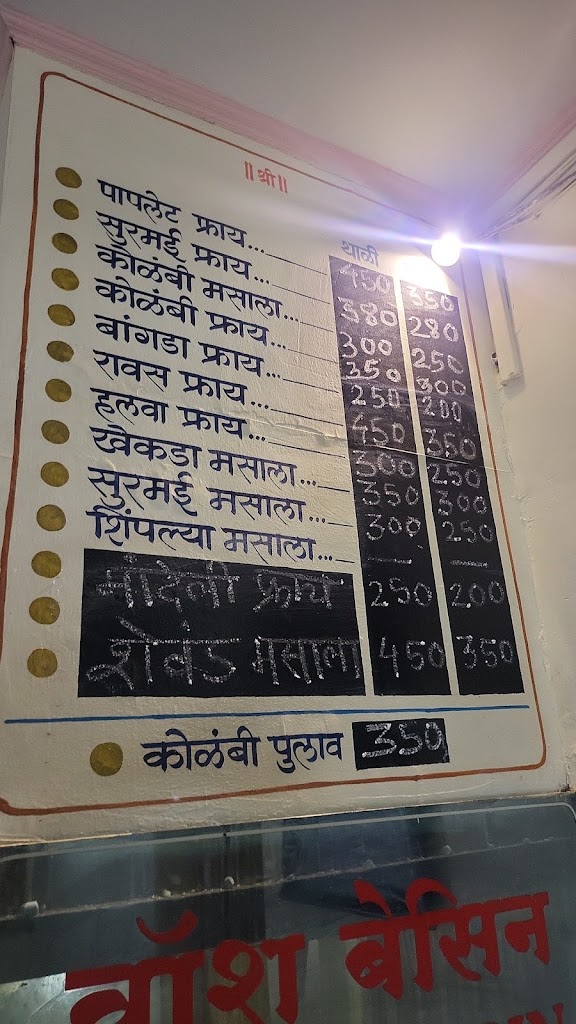 ॥ श्री ॥
थाळी
पापलेट फ्राय... 450 350
सुरमई फ्राय... 380 280
कोळंबी मसाला... 300 250
कोळंबी फ्राय... 350 300
बांगडा फ्राय... 250 200
रावस फ्राय... 450 350
हलवा फ्राय... 300 250
खेकडा मसाला... 350 300
सुरमई मसाला... 300 250
शिंपल्या मसाला... — —
मांदेली फ्राय 250 200
शेवंड मसाला 450 350
कोळंबी पुलाव 350
वॉश बेसिन